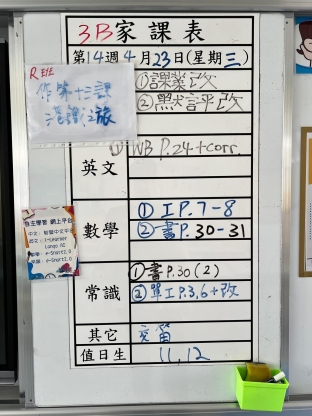 3B家課表
第14週4月23日(星期三)
R 作第十三課
港鐵之旅
①課業改
②默書評改
英文
①WB P.24+corr.
數學
①工P.7-8
②書P.30-31
常識
①書P.30(2)
②單工P.3,6+改
其它
交笛
值日生
11,12
自主學習 網上平台